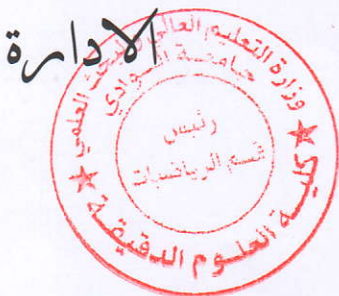 الادارة
وزارة التعليم العالي والبحث العلمي
جامعة الوادي
رئيس
قسم الرياضيات
كلية العلوم الدقيقة